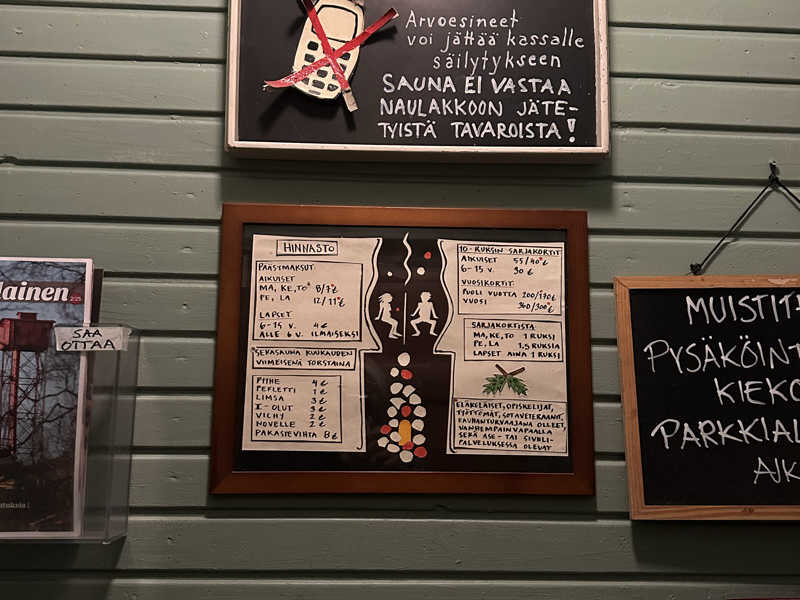 Arvoesineet
voi jättää kassalle
säilytykseen
SAUNA EI VASTAA
NAULAKKOON JÄTE-
TYISTÄ TAVAROISTA!
lainen
SAA
OTTAA
HINNASTO
PÄÄSYMAKSUT
AIKUISET
MA, KE, TO* 8/7*€
PE, LA 12/11*€
LAPSET
6-15 V. 4€
ALLE 6 V. ILMAISEKSI
SEKASAUNA KUUKAUDEN
VIIMEISENÄ TORSTAINA
PYYHE 4€
PEFLETTI 1€
LIMSA 3€
I-OLUT 3€
VICHY 2€
NOVELLE 2€
PAKASTEVIHTA 8€
10-RUKSIN SARJAKORTIT
AIKUISET 55/40*€
6-15 V. 30€
VUOSIKORTIT
PUOLI VUOTTA 200/170€
VUOSI 340/300*€
SARJAKORTISTA
MA, KE, TO 1 RUKSI
PE, LA 1,5 RUKSIA
LAPSET AINA 1 RUKSI
ELÄKELÄISET, OPISKELIJAT,
TYÖTTÖMÄT, SOTAVETERAANIT,
RAUHANTURVAAJANA OLLEET,
VANHEMPAINVAPAALLA
SEKÄ ASE- TAI SIVIILI-
PALVELUKSESSA OLEVAT
MUISTITH
PYSÄKÖINT
KIEKO
PARKKIAL
AJK